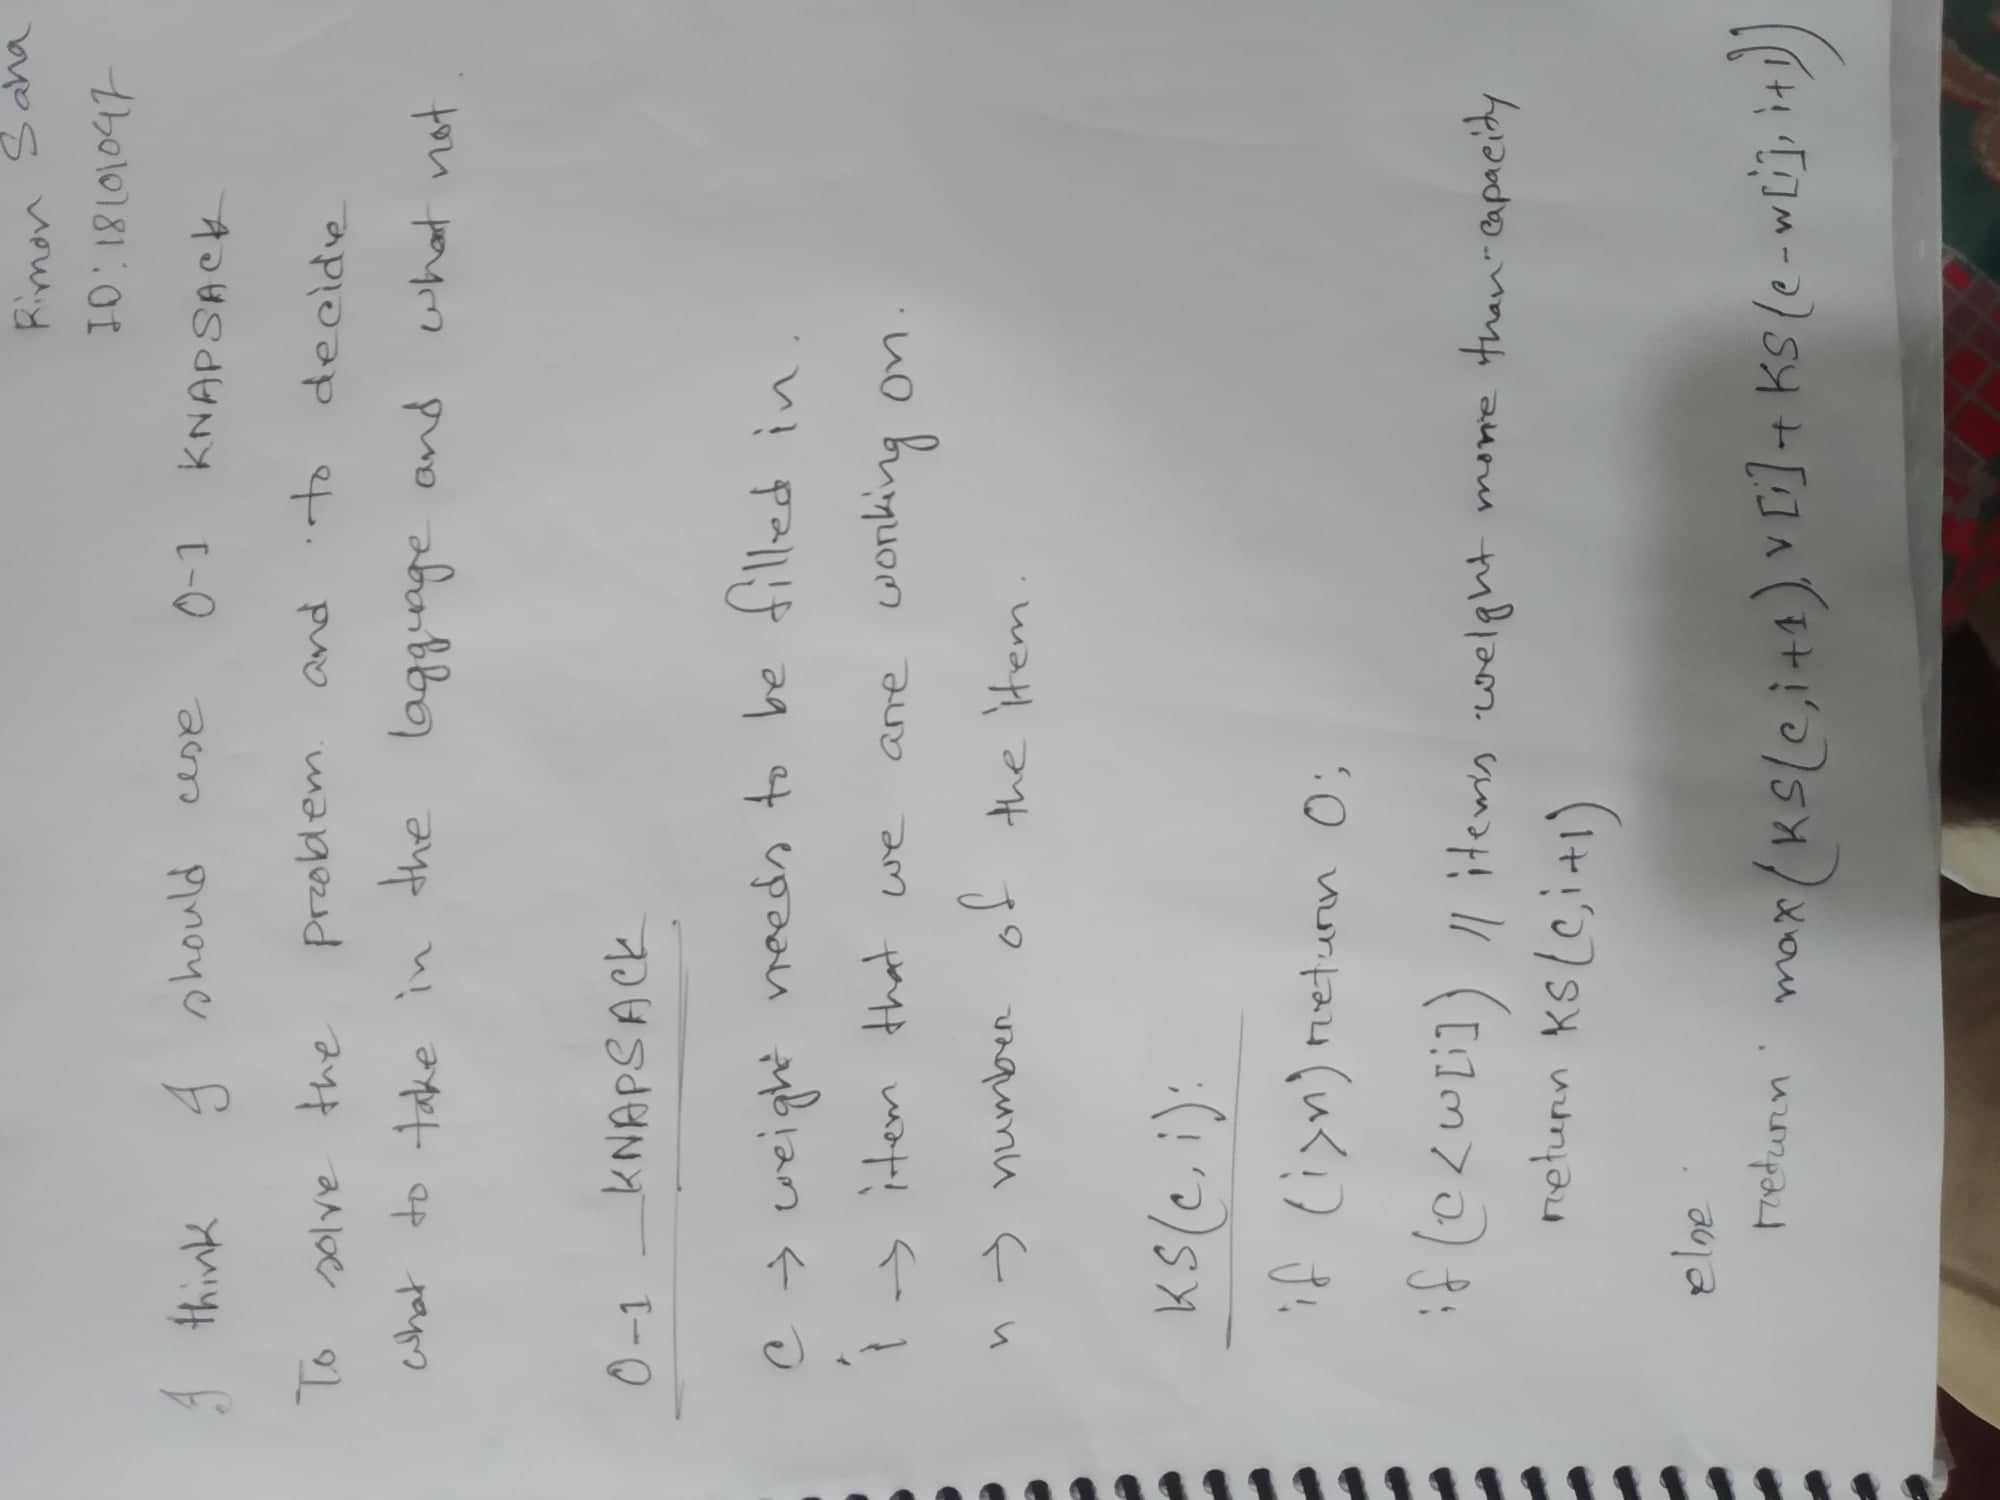 Rimon Saha
ID: 18101097
I think I should use 0-1 KNAPSACK
To solve the problem and to decide
what to take in the lagguage and what not.
0-1 KNAPSACK
C → weight needs to be filled in.
i → item that we are working on.
n → number of the item.
KS(c, i):
if (i>n) return 0;
if (c < w[i]) // items weight more than capacity
return KS(c, i+1)
else
return max(KS(c, i+1), v[i] + KS(c-w[i], i+1))